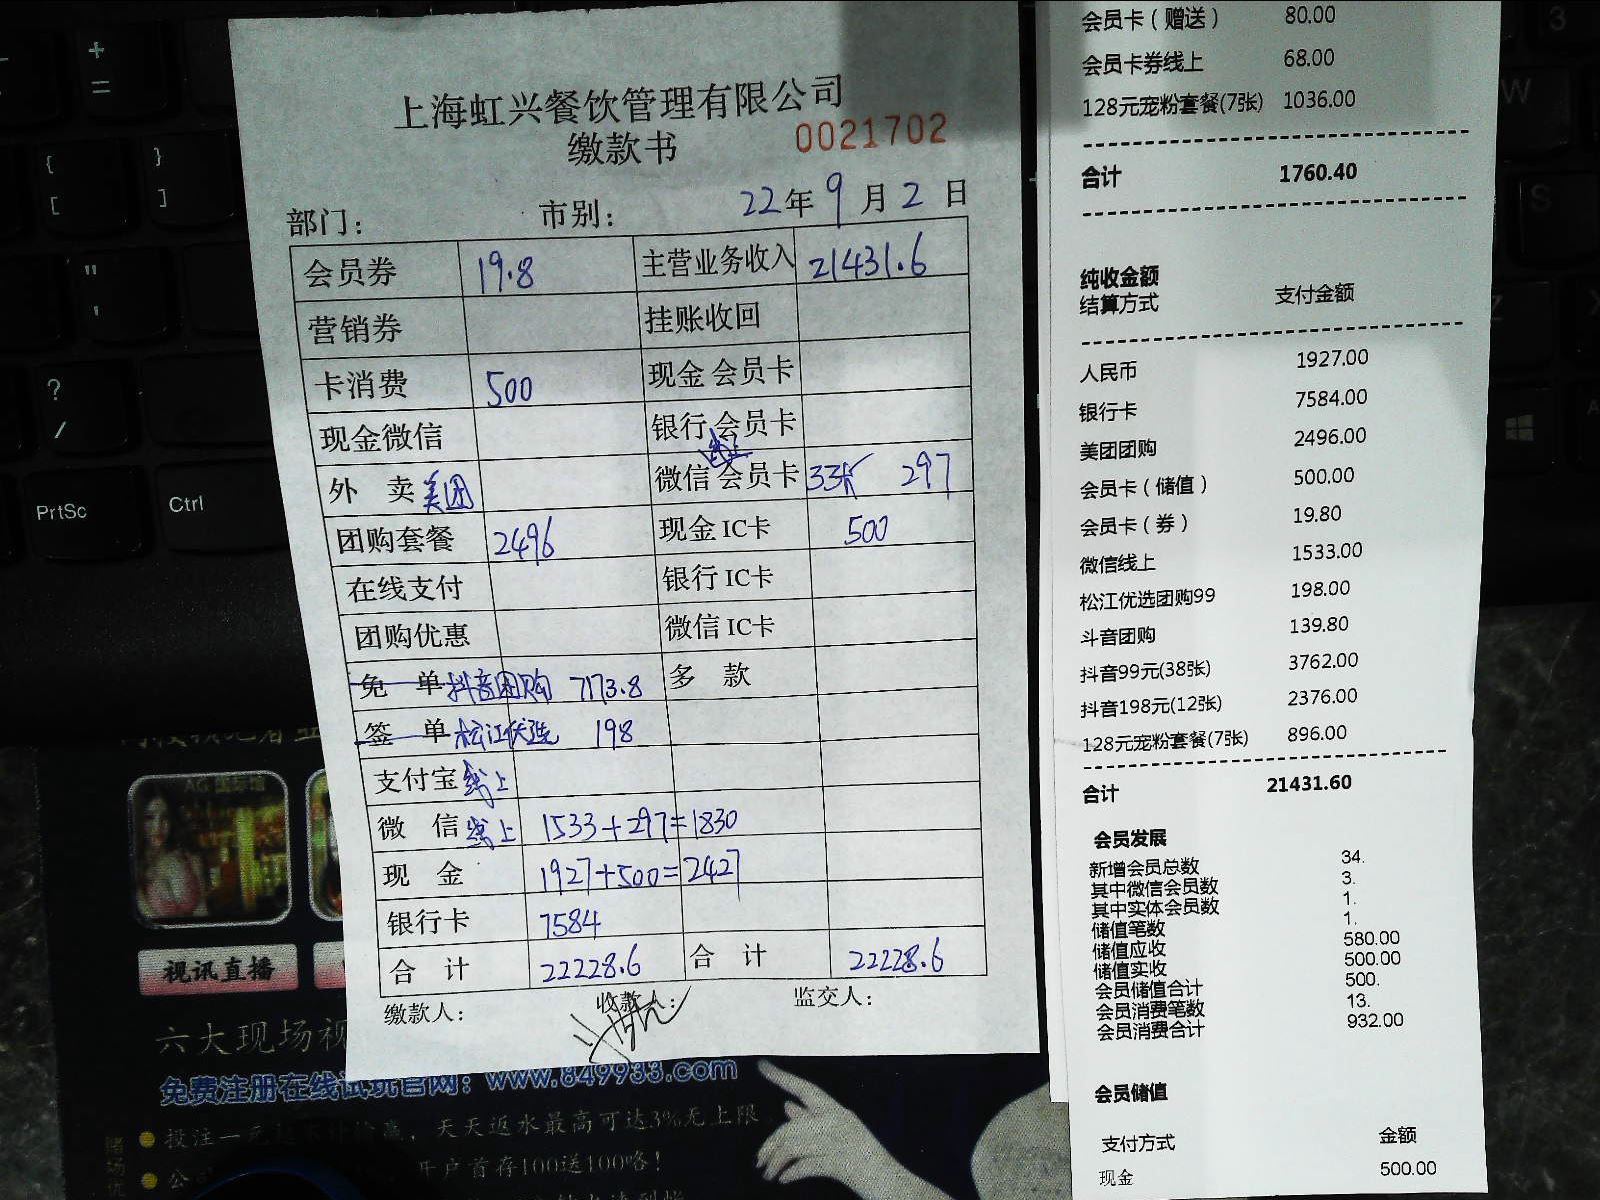 上海虹兴餐饮管理有限公司
缴款书 0021702
部门： 市别： 22年9月2日
会员券 19.8 主营业务收入 21431.6
营销券 挂账收回
卡消费 500 现金 会员卡
现金微信 银行 会员卡
外 卖 美团 微信 线上 会员卡 33张 297
团购套餐 2496 现金 IC卡 500
在线支付 银行 IC卡
团购优惠 微信 IC卡
免 单 抖音团购 7173.8 多 款
签 单 松江优选 198
支付宝 线上
微 信 线上 1533+297=1830
现 金 1927+500=2427
银行卡 7584
合 计 22228.6 合 计 22228.6
缴款人： 收款人： 监交人：
会员卡（赠送） 80.00
会员卡券线上 68.00
128元宠粉套餐(7张) 1036.00
合计 1760.40
纯收金额
结算方式 支付金额
人民币 1927.00
银行卡 7584.00
美团团购 2496.00
会员卡（储值） 500.00
会员卡（券） 19.80
微信线上 1533.00
松江优选团购99 198.00
斗音团购 139.80
抖音99元(38张) 3762.00
抖音198元(12张) 2376.00
128元宠粉套餐(7张) 896.00
合计 21431.60
会员发展
新增会员总数 34.
其中微信会员数 3.
其中实体会员数 1.
储值笔数 1.
储值应收 580.00
储值实收 500.00
会员储值合计 500.
会员消费笔数 13.
会员消费合计 932.00
会员储值
支付方式 金额
现金 500.00
+
=
{
[
}
]
"
'
?
/
PrtSc
Ctrl
视讯直播
六大现场视
免费注册在线试玩官网：www.849933.com
天天返水最高可达3%无上限
开户首存100送100咯！